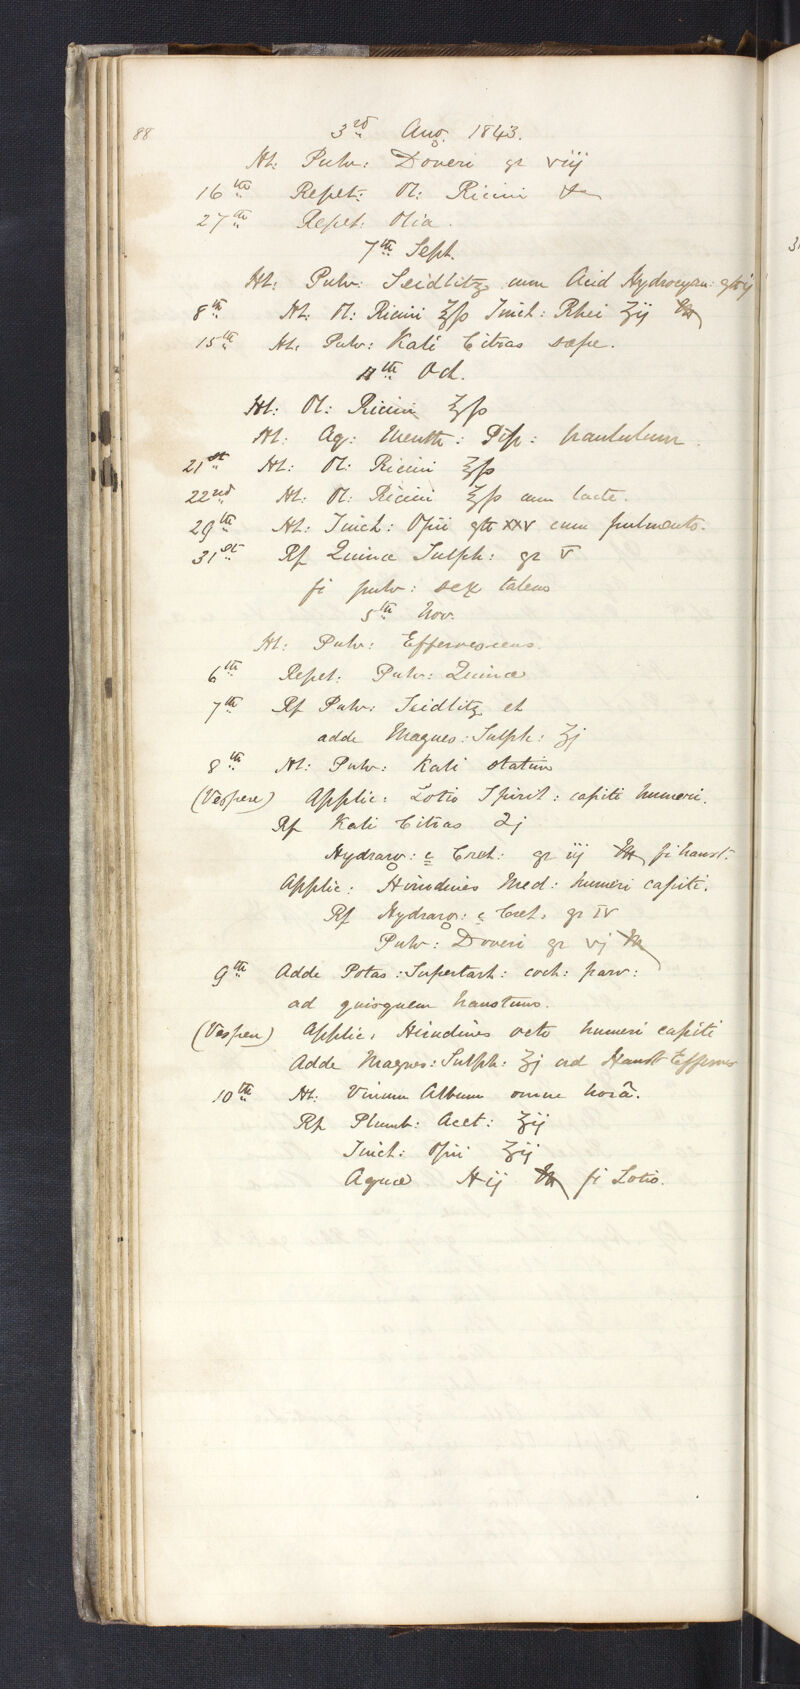 88
3rd Aug. 1843.
Ht: Pulv: Doveri gr viij
16th Repet: Ol: Ricini &c
27th Repet: Olia.
7th Sept.
Ht: Pulv: Seidlitz cum Acid Hydrocyan: gtt ij
8th Ht: Ol: Ricini ℥ſs Tinct: Rhei ʒij M
15th Ht: Pulv: Kali Citras sæpe.
11th Oct.
Ht: Ol: Ricini ℥ſs
Ht: Aq: Menth: Pip: paululum.
21st Ht: Ol: Ricini ℥ſs
22nd Ht: Ol: Ricini ℥ſs cum lacte.
29th Ht: Tinct: Opii gtt xxv cum pulmento.
31st Rf Quinæ Sulph: gr V
fi pulv: sex tales
5th Nov.
Ht: Pulv: Effervescens.
6th Repet: Pulv: Quinæ
7th Rf Pulv: Seidlitz et
adde Magnes: Sulph: ʒj
8th Ht: Pulv: Kali statim
(Vespere) Applic: Lotio Spirit: capiti humeri.
Rf Kali Citras ʒj
Hydrarg: c Cret: gr iij M fi haust.
Applic: Hirudines Med: humeri capiti.
Rf Hydrarg: c Cret: gr IV
Pulv: Doveri gr vj M
9th Adde Potas: Supertart: coch: parv:
ad quisquem haustum.
(Vespere) Applic: Hirudines octo humeri capiti
Adde Magnes: Sulph: ʒj ad Haust Efferves
10th Ht: Vinum Album omne horâ.
Rf Plumb: Acet: ʒij
Tinct: Opii ʒij
Aquæ ij M fi Lotio.